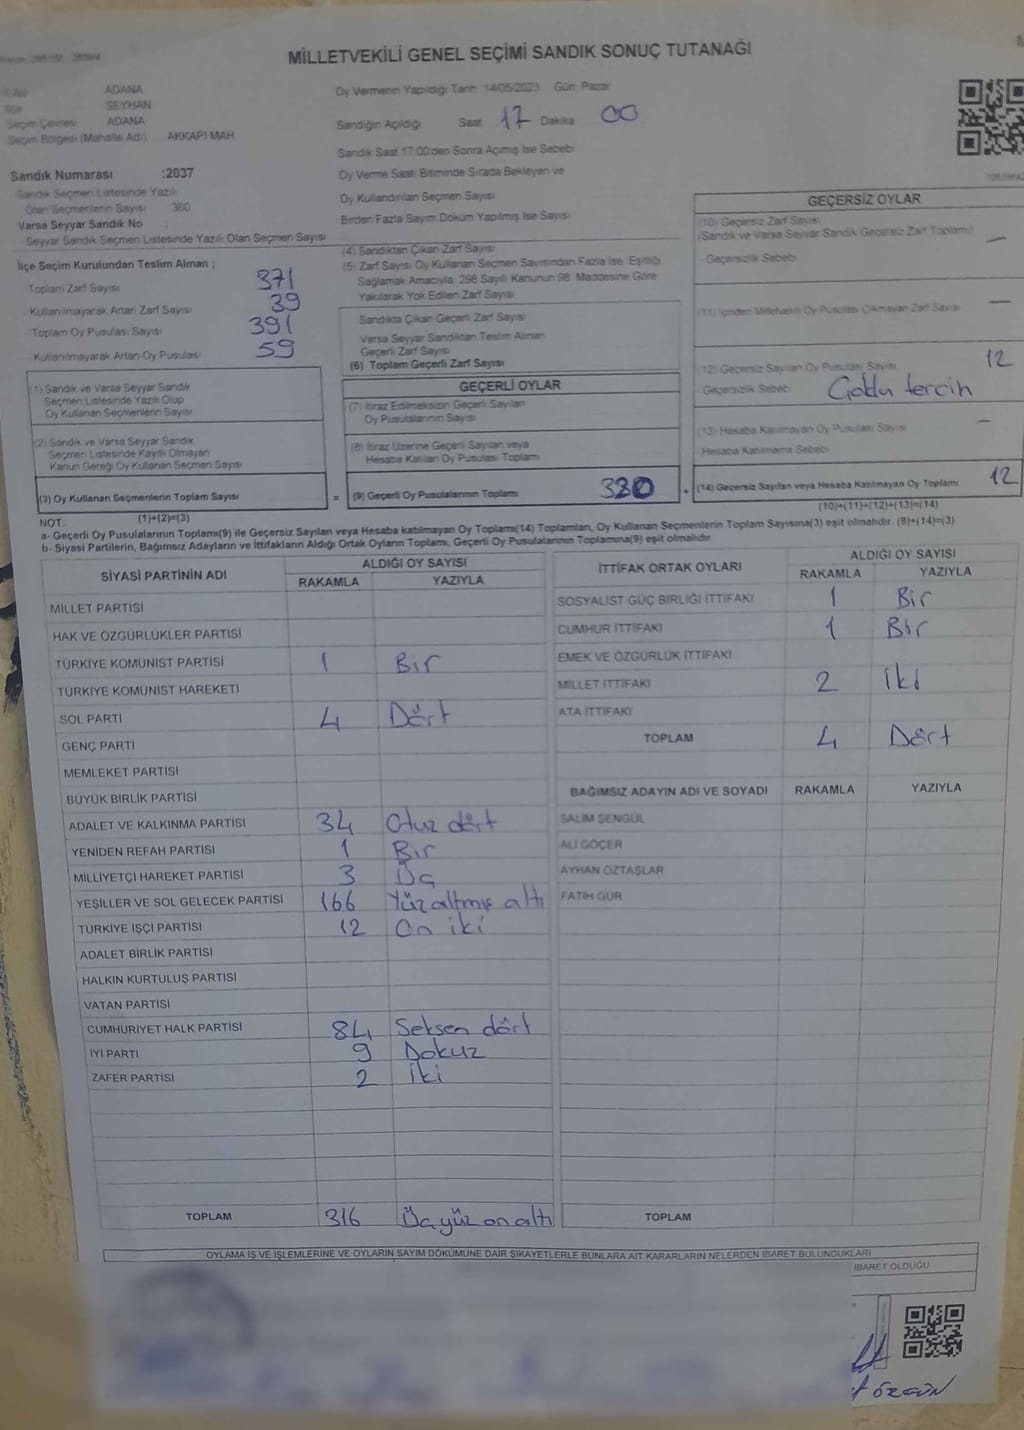 MİLLETVEKİLİ GENEL SEÇİMİ SANDIK SONUÇ TUTANAĞI
ADANA
SEYHAN
Seçim Çevresi ADANA
Seçim Bölgesi (Mahalle Adı) AKKAPI MAH.
Sandık Numarası :2037
Sandık Seçmen Listesinde Yazılı
Olan Seçmenlerin Sayısı 360
Varsa Seyyar Sandık No
Seyyar Sandık Seçmen Listesinde Yazılı Olan Seçmen Sayısı
İlçe Seçim Kurulundan Teslim Alınan ;
Toplam Zarf Sayısı 371
Kullanılmayarak Artan Zarf Sayısı 39
Toplam Oy Pusulası Sayısı 391
Kullanılmayarak Artan Oy Pusulası 59
(1) Sandık ve Varsa Seyyar Sandık
Seçmen Listesinde Yazılı Olup
Oy Kullanan Seçmenlerin Sayısı
(2) Sandık ve Varsa Seyyar Sandık
Seçmen Listesinde Kayıtlı Olmayan
Kanun Gereği Oy Kullanan Seçmen Sayısı
(3) Oy Kullanan Seçmenlerin Toplam Sayısı
(1)+(2)=(3)
Oy Vermenin Yapıldığı Tarih 14/05/2023 Gün Pazar
Sandığın Açıldığı Saat 17 Dakika 00
Sandık Saat 17:00'den Sonra Açılmış İse Sebebi
Oy Verme Saati Bitiminde Sırada Bekleyen ve
Oy Kullandırılan Seçmen Sayısı
Birden Fazla Sayım Döküm Yapılmış İse Sayısı
(4) Sandıktan Çıkan Zarf Sayısı
(5) Zarf Sayısı Oy Kullanan Seçmen Sayısından Fazla İse, Eşitliği
Sağlamak Amacıyla 298 Sayılı Kanunun 98. Maddesine Göre
Yakılarak Yok Edilen Zarf Sayısı
Sandıkta Çıkan Geçerli Zarf Sayısı
Varsa Seyyar Sandıktan Teslim Alınan
Geçerli Zarf Sayısı
(6) Toplam Geçerli Zarf Sayısı
GEÇERLİ OYLAR
(7) İtiraz Edilmeksizin Geçerli Sayılan
Oy Pusulalarının Sayısı
(8) İtiraz Üzerine Geçerli Sayılan veya
Hesaba Katılan Oy Pusulası Toplamı
= (9) Geçerli Oy Pusulalarının Toplamı 320
GEÇERSİZ OYLAR
(10) Geçersiz Zarf Sayısı
(Sandık ve Varsa Seyyar Sandık Geçersiz Zarf Toplamı) —
- Geçersizlik Sebebi
(11) İçinden Milletvekili Oy Pusulası Çıkmayan Zarf Sayısı —
(12) Geçersiz Sayılan Oy Pusulası Sayısı 12
- Geçersizlik Sebebi
(13) Hesaba Katılmayan Oy Pusulası Sayısı —
- Hesaba Katılmama Sebebi
+ (14) Geçersiz Sayılan veya Hesaba Katılmayan Oy Toplamı 12
(10)+(11)+(12)+(13)=(14)
NOT:
a- Geçerli Oy Pusulalarının Toplamı(9) ile Geçersiz Sayılan veya Hesaba katılmayan Oy Toplamı(14) Toplamları, Oy Kullanan Seçmenlerin Toplam Sayısına(3) eşit olmalıdır. (9)+(14)=(3)
b- Siyasi Partilerin, Bağımsız Adayların ve İttifakların Aldığı Ortak Oyların Toplamı, Geçerli Oy Pusulalarının Toplamına(9) eşit olmalıdır.
SİYASİ PARTİNİN ADI ALDIĞI OY SAYISI
RAKAMLA YAZIYLA
MİLLET PARTİSİ
HAK VE ÖZGÜRLÜKLER PARTİSİ
TÜRKİYE KOMÜNİST PARTİSİ 1 Bir
TÜRKİYE KOMÜNİST HAREKETİ
SOL PARTİ 4 Dört
GENÇ PARTİ
MEMLEKET PARTİSİ
BÜYÜK BİRLİK PARTİSİ
ADALET VE KALKINMA PARTİSİ 34 Otuz dört
YENİDEN REFAH PARTİSİ 1 Bir
MİLLİYETÇİ HAREKET PARTİSİ 3 Üç
YEŞİLLER VE SOL GELECEK PARTİSİ 166 Yüzaltmış altı
TÜRKİYE İŞÇİ PARTİSİ 12 On iki
ADALET BİRLİK PARTİSİ
HALKIN KURTULUŞ PARTİSİ
VATAN PARTİSİ
CUMHURİYET HALK PARTİSİ 84 Seksen dört
İYİ PARTİ 9 Dokuz
ZAFER PARTİSİ 2 İki
TOPLAM 316 Üçyüz onaltı
İTTİFAK ORTAK OYLARI ALDIĞI OY SAYISI
RAKAMLA YAZIYLA
SOSYALİST GÜÇ BİRLİĞİ İTTİFAKI 1 Bir
CUMHUR İTTİFAKI 1 Bir
EMEK VE ÖZGÜRLÜK İTTİFAKI
MİLLET İTTİFAKI 2 İki
ATA İTTİFAKI
TOPLAM 4 Dört
BAĞIMSIZ ADAYIN ADI VE SOYADI RAKAMLA YAZIYLA
SALİM ŞENGÜL
ALİ GÖÇER
AYHAN ÖZTAŞLAR
FATİH GÜR
TOPLAM
OYLAMA İŞ VE İŞLEMLERİNE VE OYLARIN SAYIM DÖKÜMÜNE DAİR ŞİKAYETLERLE BUNLARA AİT KARARLARIN NELERDEN İBARET BULUNDUKLARI
İBARET OLDUĞU
ÖZGÜN